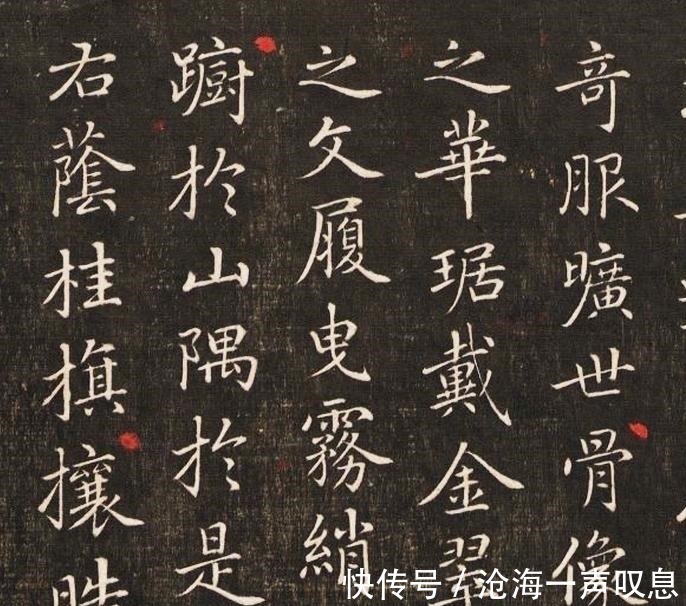 奇服曠世骨像
之華琚戴金翠
之文履曳霧綃
躕於山隅於是
右蔭桂旗攘皓
快传号/沧海一声叹息